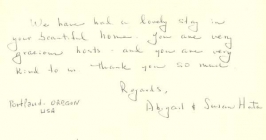 We have had a lovely stay in
your beautiful home. You are very
gracious hosts - and you are very
kind to us - thank you so much
Regards,
Abigail & Susan
Portland - OREGON
USA